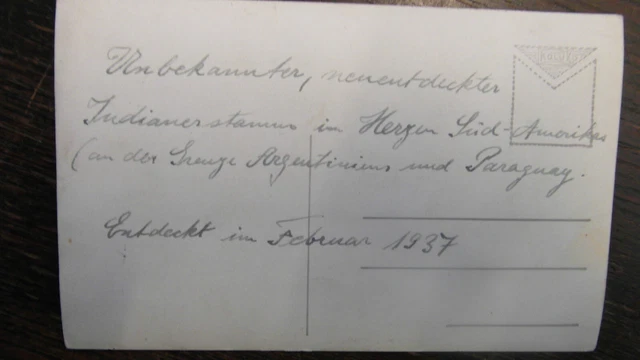 Unbekannter, neuentdeckter
Indianerstamm im Herzen Süd-Amerikas
(an der Grenze Argentiniens und Paraguay.
Entdeckt im Februar 1937